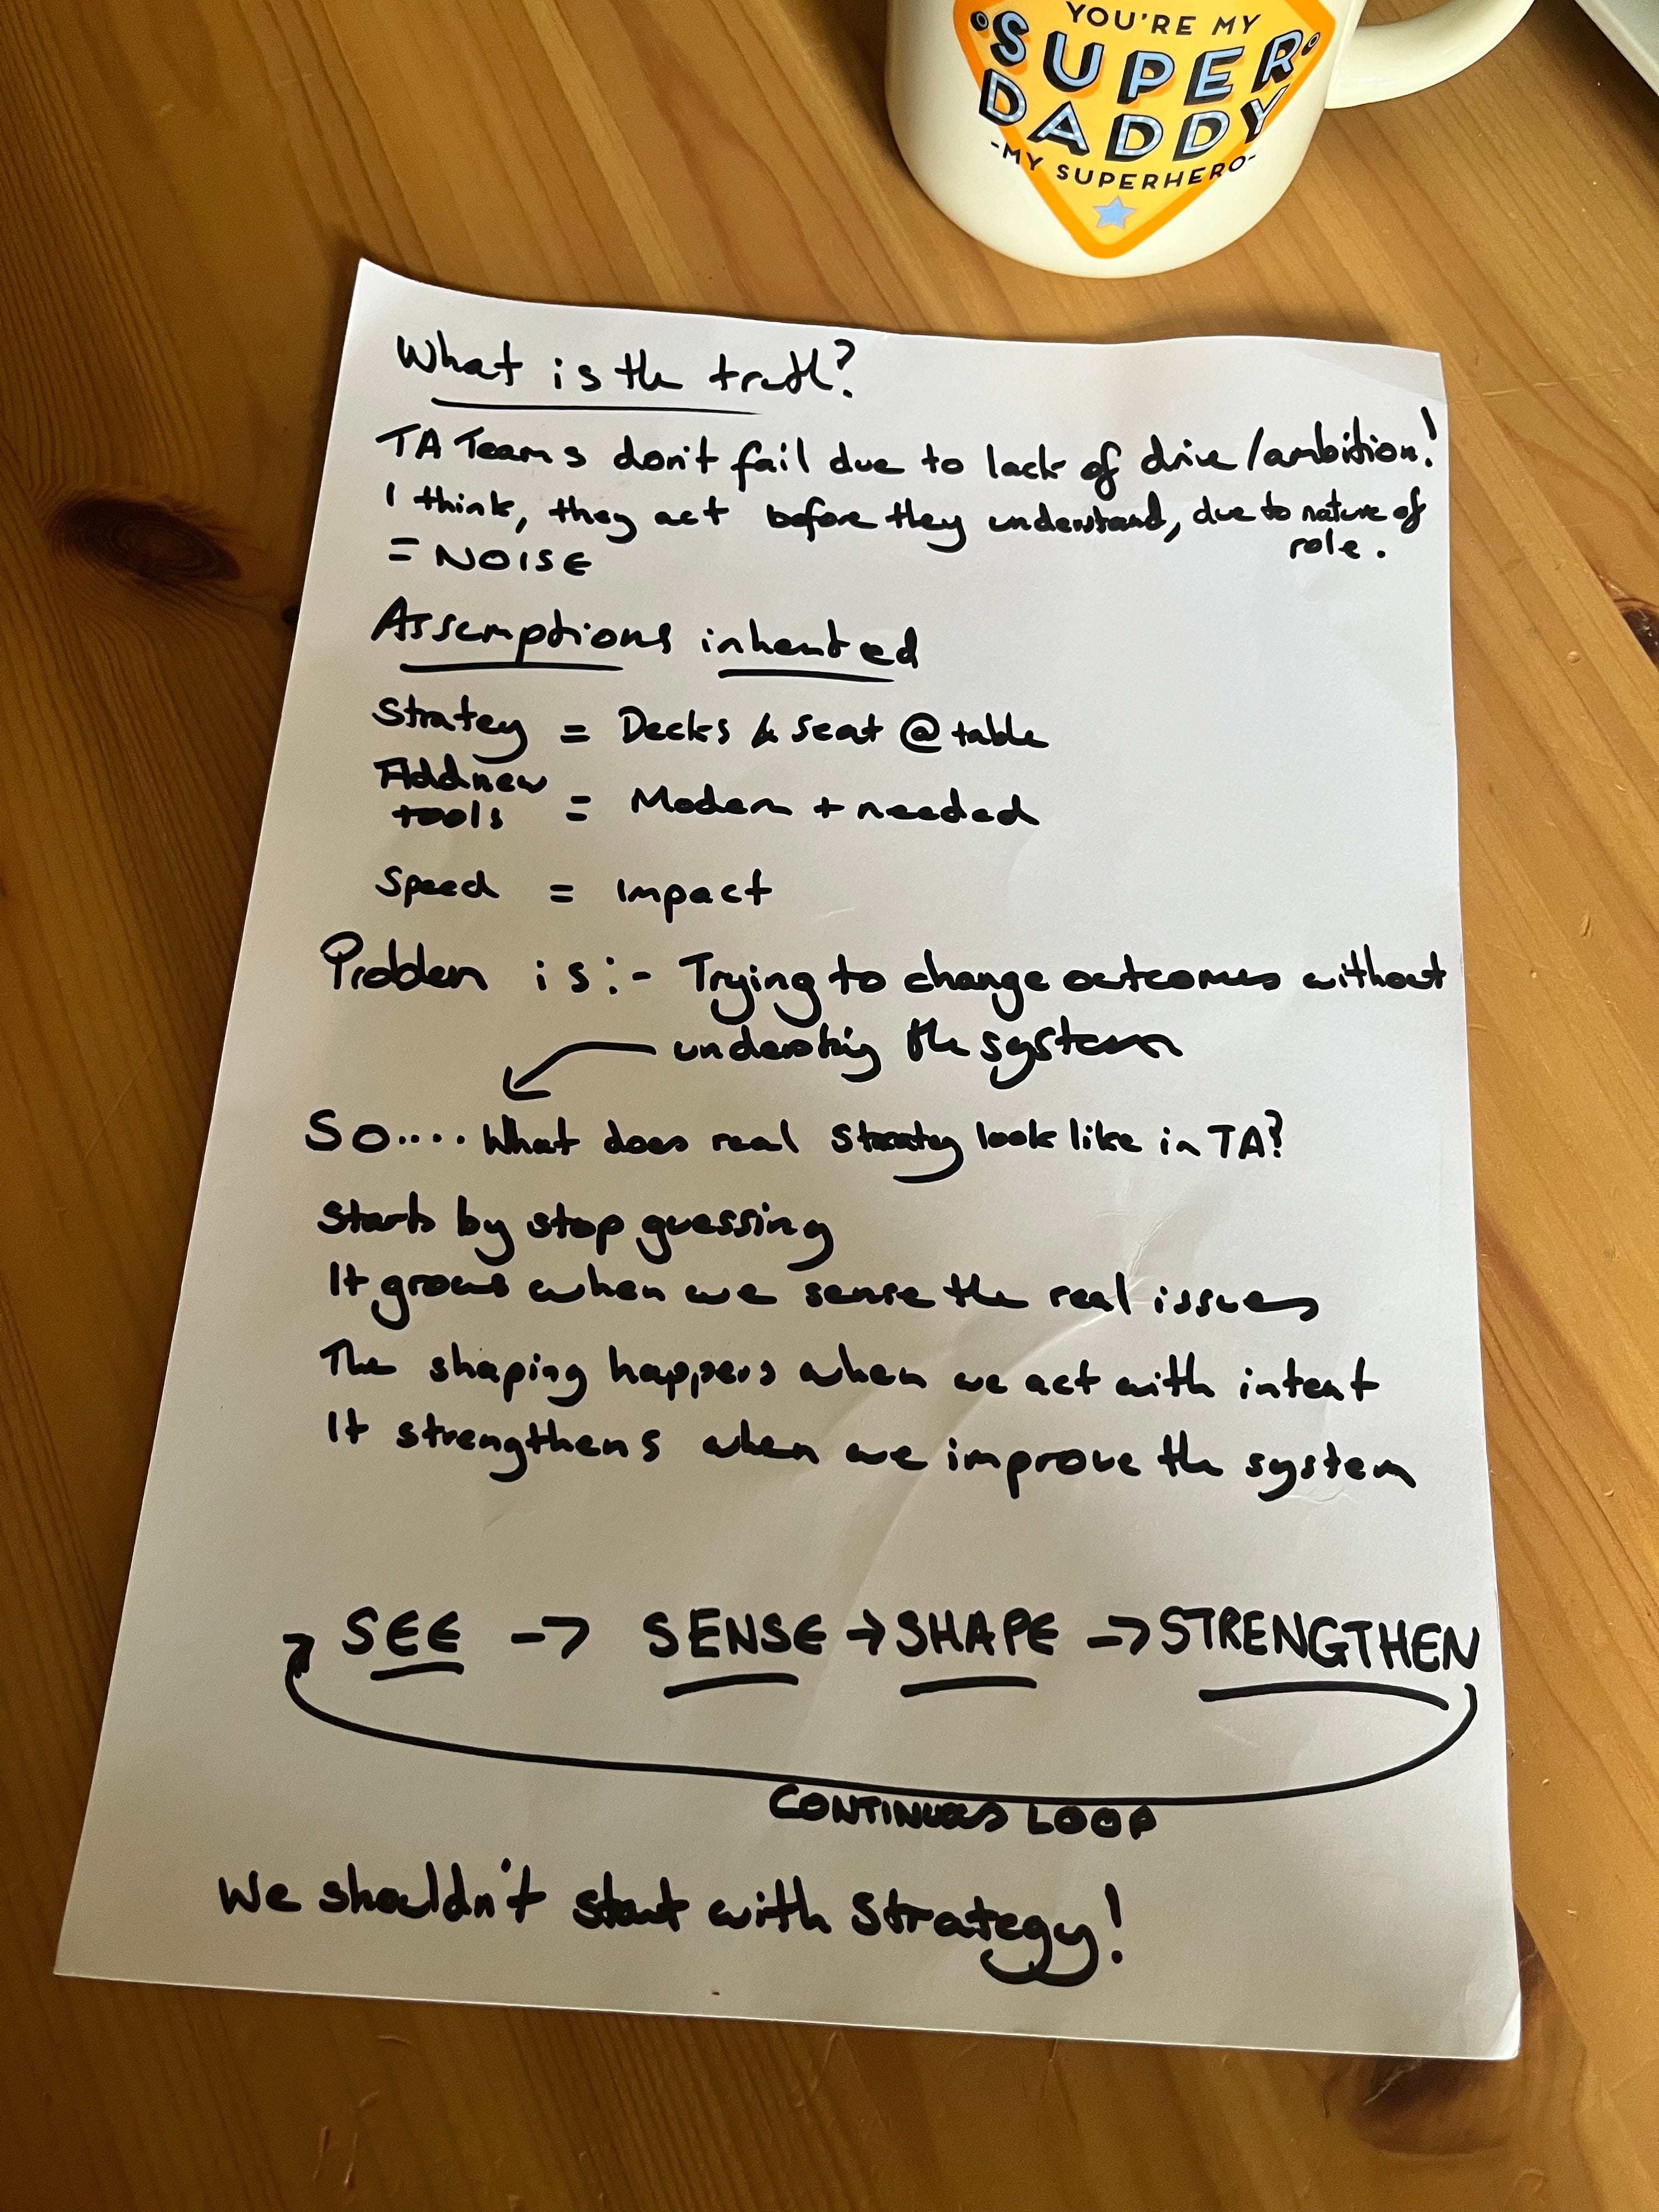 YOU'RE MY
SUPER
DADDY
-MY SUPERHERO-
What is the truth?
TA Teams don't fail due to lack of drive/ambition!
I think, they act before they understand, due to nature of
role.
= NOISE
Assumptions inherited
Stratey = Decks & seat @ table
Add new
tools = Modern + needed
Speed = impact
Problem is:- Trying to change outcomes without
the system
SO.... What does real strategy look like in TA?
Starts by stop guessing
It grows when we sense the real issues
The shaping happens when we act with intent
It strengthens when we improve the system
SEE -> SENSE -> SHAPE -> STRENGTHEN
CONTINUOUS LOOP
We shouldn't start with strategy!